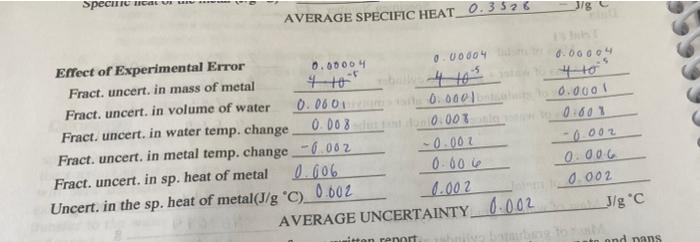 Specific heat of the metal
AVERAGE SPECIFIC HEAT 0.3528 J/g °C
Effect of Experimental Error 0.00004 0.00004 0.00004
Fract. uncert. in mass of metal 4 10⁻⁵ 4 10⁻⁵ 4 10⁻⁵
Fract. uncert. in volume of water 0.0001 0.0001 0.0001
Fract. uncert. in water temp. change 0.008 0.008 0.008
Fract. uncert. in metal temp. change -0.002 -0.002 -0.002
Fract. uncert. in sp. heat of metal 0.006 0.006 0.006
Uncert. in the sp. heat of metal(J/g °C) 0.002 0.002 0.002
AVERAGE UNCERTAINTY 0.002 J/g °C
written report and pans